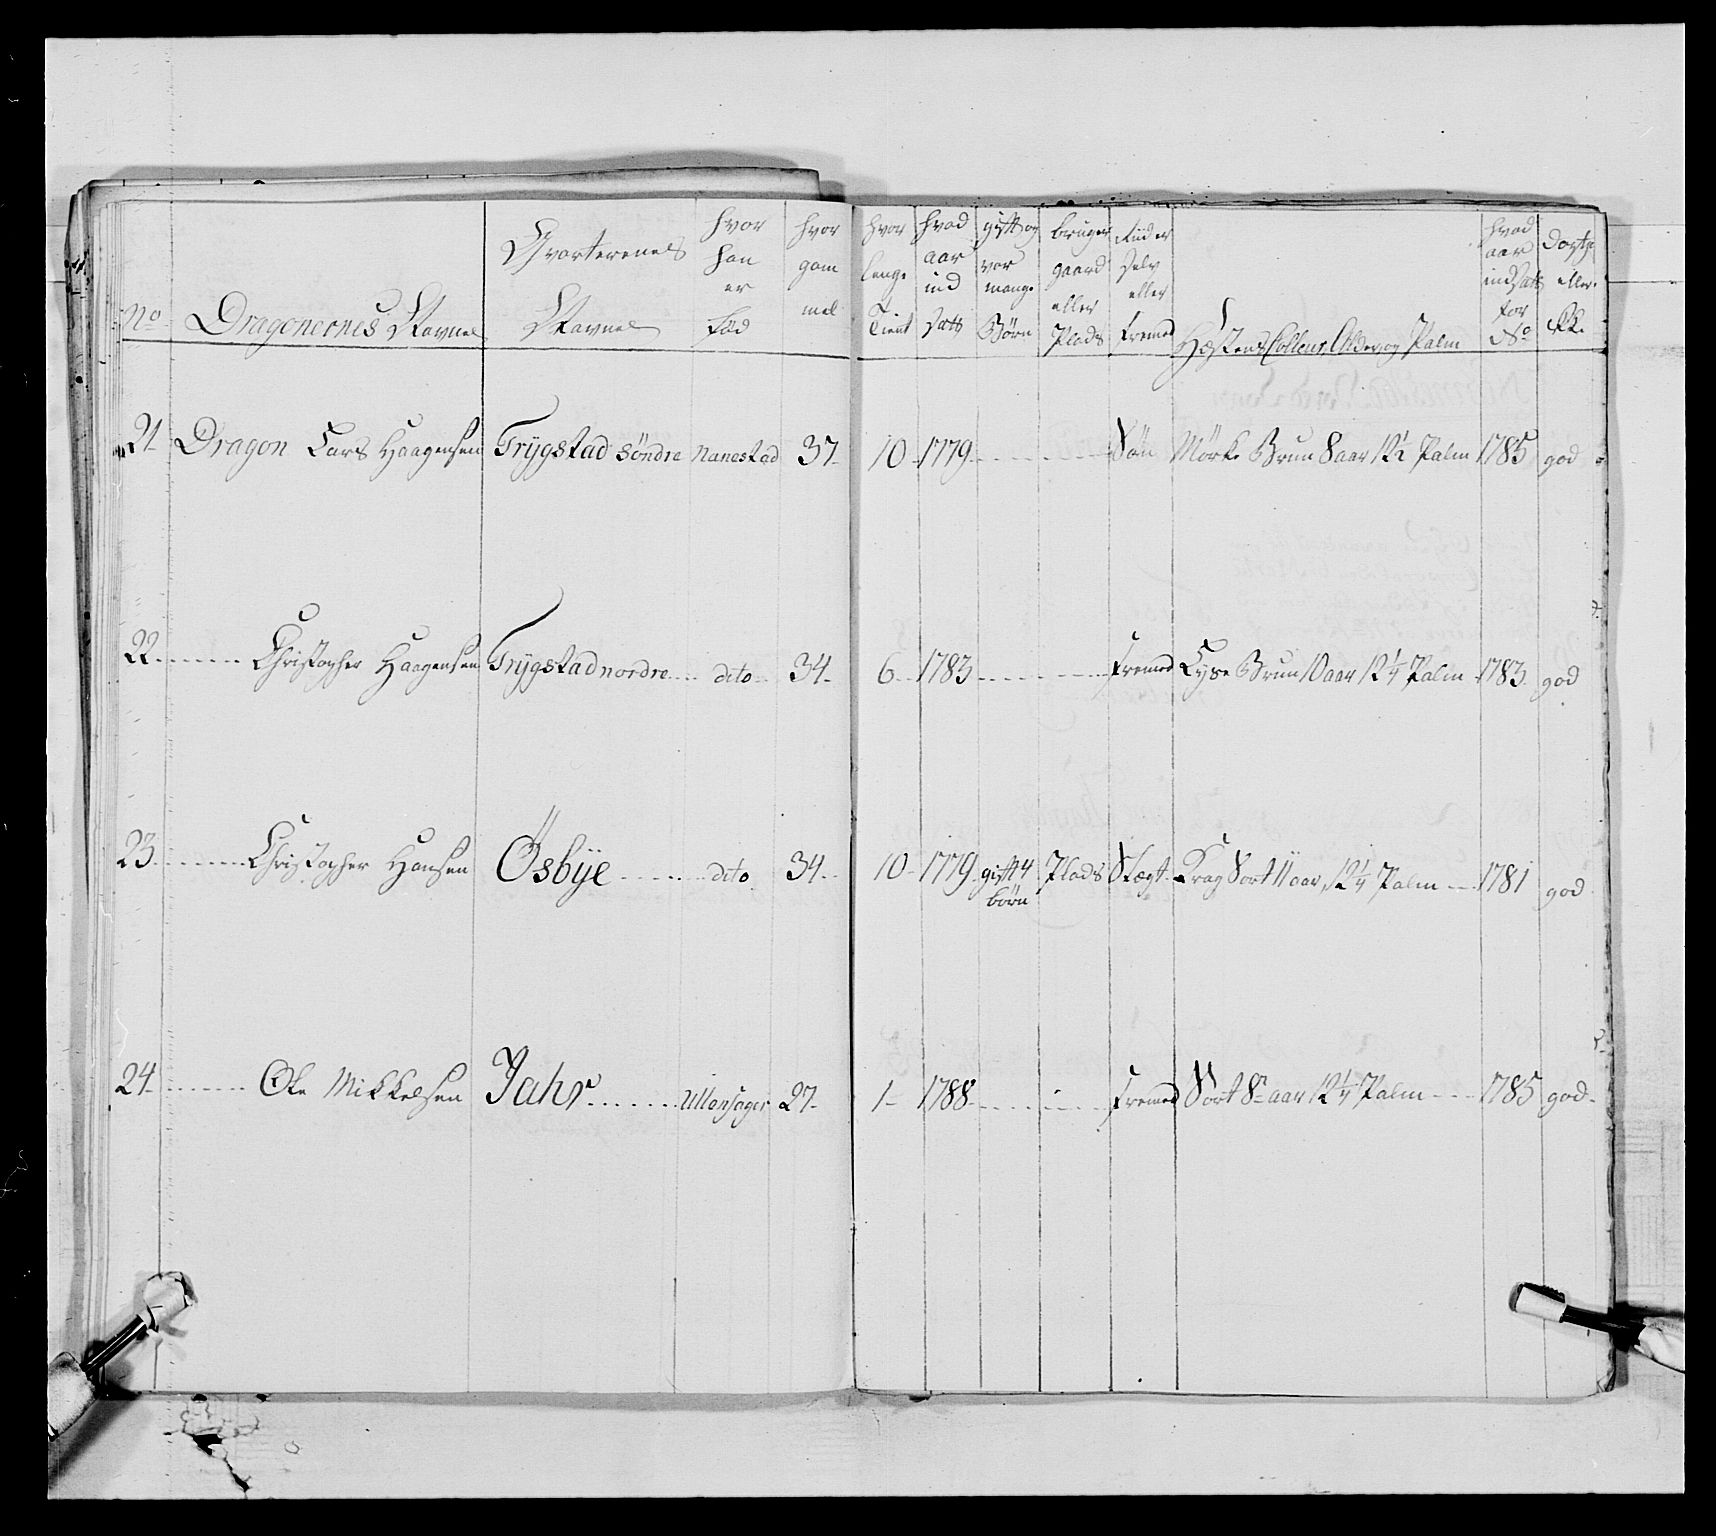 No Dragonernes Navne Qvarterenes Navne hvor han er Fød hvor gam mel hvor lenge Tient hvad aar ind satt gift og vor mange Børn bruger gaard eller Plads Riider selv eller Fremed Hæstens Colleur, Alder og Palm hvad aar indsatt for No dygtig eller
21 Dragon Lars Haagensen Trÿgstad söndre Nanestad 37 10 1779 Søn Mörke Brun 8 aar 12½ Palm 1785 god
22 Christopher Haagensen Trÿgstad nordre dito 34 6 1783 Fremed Lyse Brun 10 aar 12¼ Palm 1783 god
23 Christopher Hansen Ösbÿe dito 34 10 1779 gift 4 børn Plads Slegt Krag Sort 11 aar 12¼ Palm 1781 god
24 Ole Mikkelsen Jahr Ullensager 27 1 1788 Fremed Sort 8 aar 12¼ Palm 1785 god